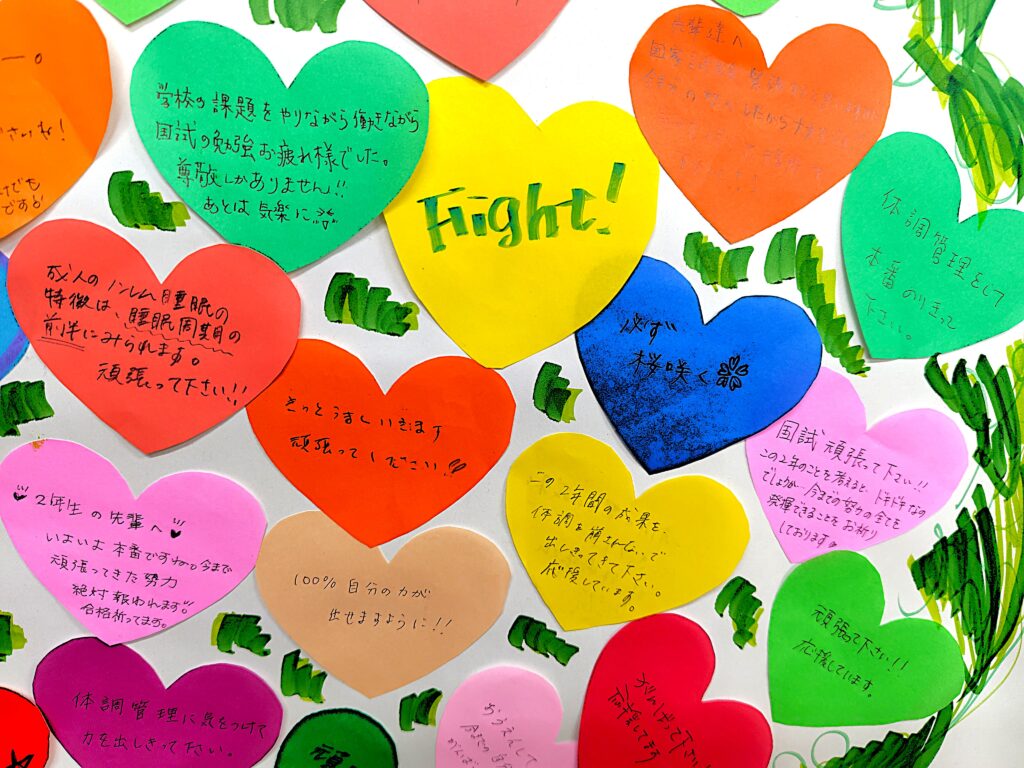 学校の課題をやりながら働きながら
国試の勉強お疲れ様でした。
尊敬しかありません!!
あとは気楽に
Fight!
先輩達へ
体調管理をして
本番のりきって
下さい。
成人のノンレム睡眠の
特徴は、睡眠周期の
前半にみられます。
頑張って下さい!!
必ず
桜咲く
きっとうまくいきます
頑張ってください!
国試頑張って下さい!!
この2年のことを考えると、ドキドキなの
でしょうが…今までの努力の全てを
発揮できることをお祈り
しております
2年生の先輩へ
いよいよ本番ですね。今まで
頑張ってきた努力
絶対報われます!!
合格祈ってます。
この2年間の成果を、
体調を崩されないで
出しきってきて下さい。
応援しています。
100%自分の力が
出せますように!!
頑張って下さい!!
応援しています。
体調管理に気をつけて
力を出しきって下さい。
おうえんして
がんばって下さい!!
応援してます